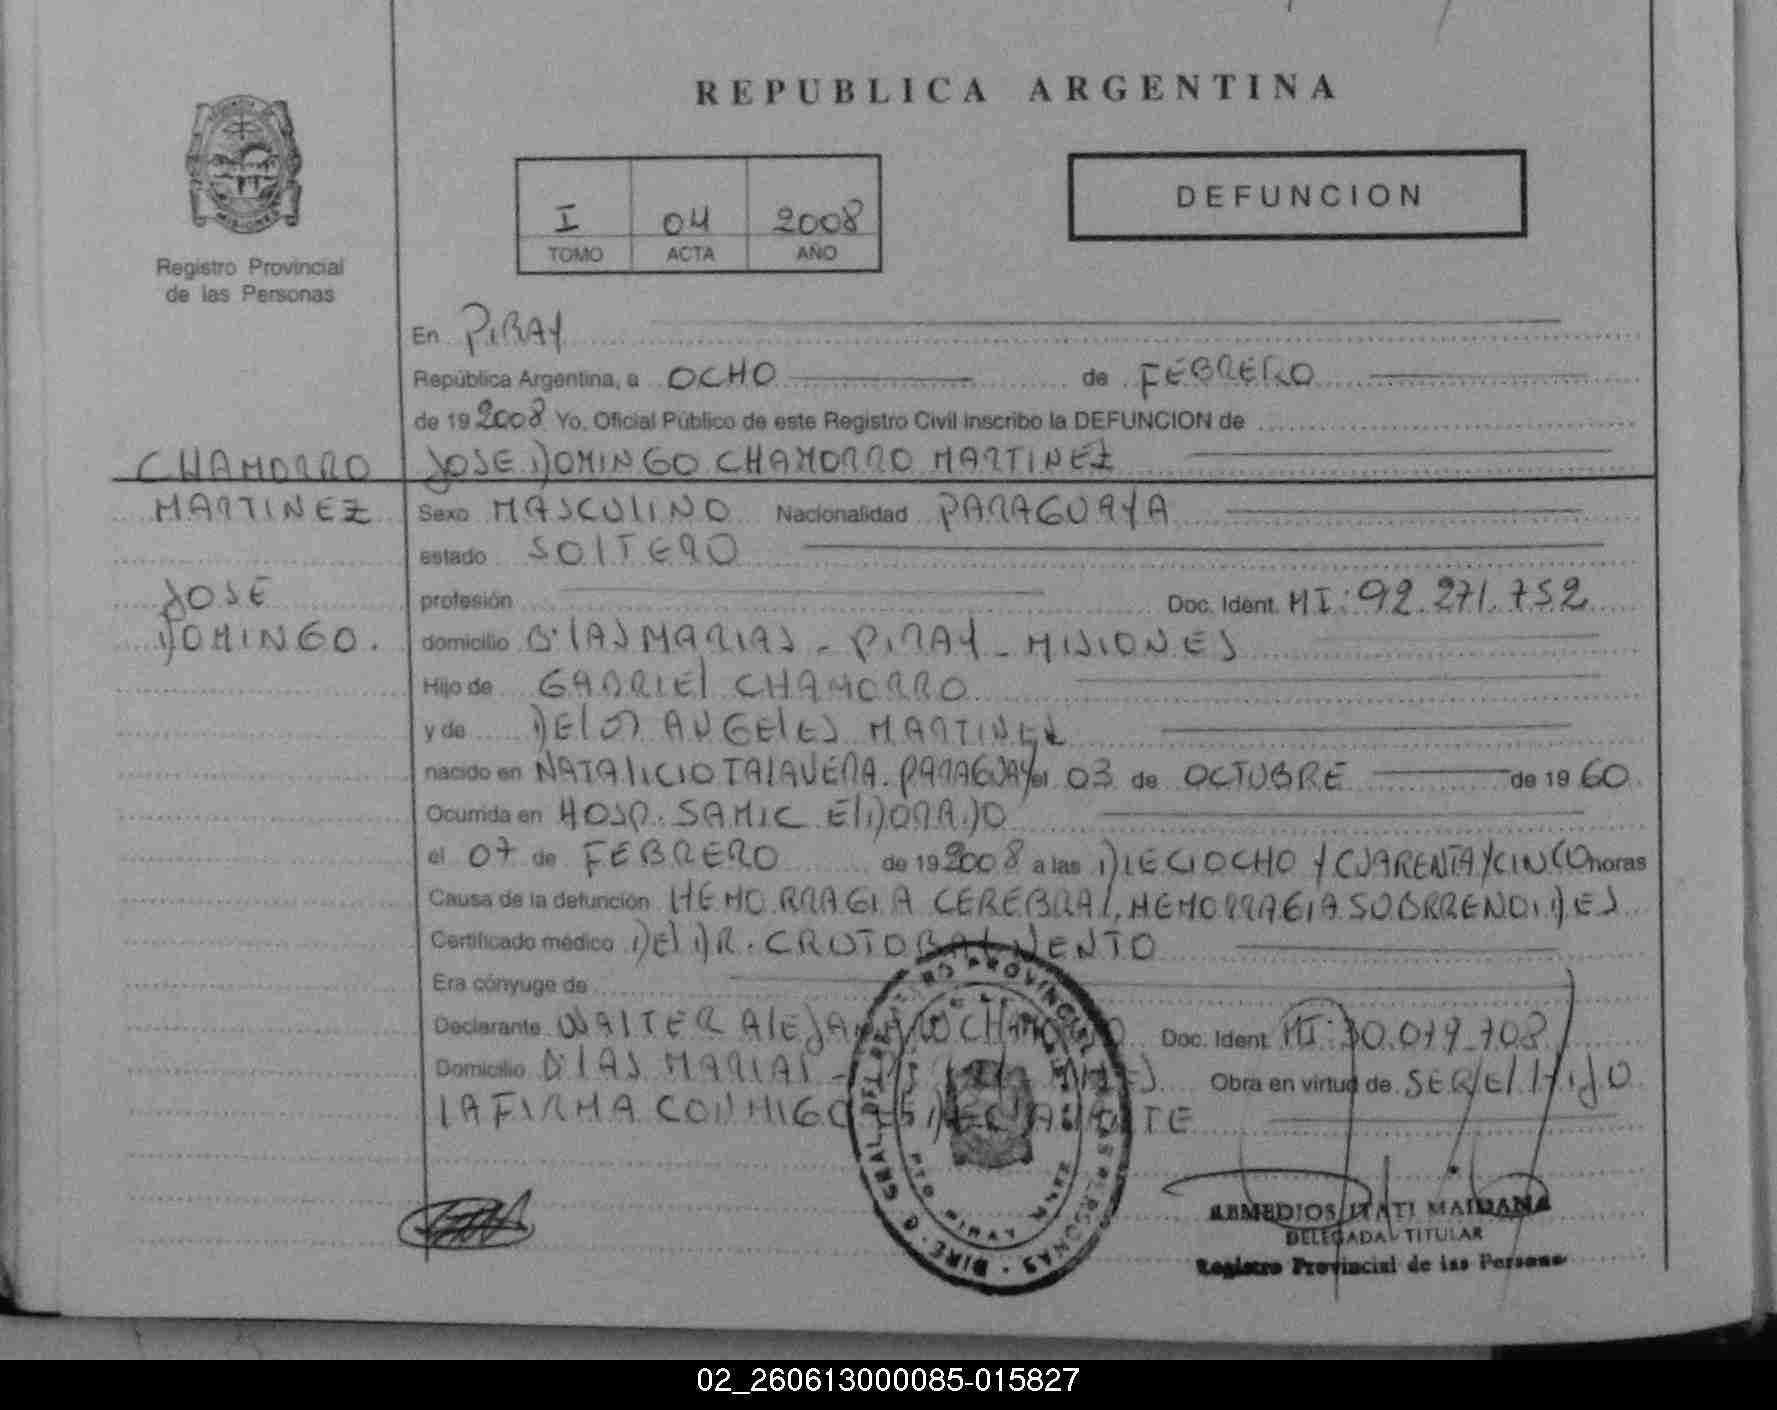 REPUBLICA ARGENTINA
DEFUNCION
I 04 2008
TOMO ACTA AÑO
Registro Provincial
de las Personas
En PIRAY
República Argentina, a OCHO de FEBRERO
de 19 2008 Yo, Oficial Público de este Registro Civil inscribo la DEFUNCION de
CHAMORRO
MARTINEZ
JOSE
DOMINGO.
JOSE DOMINGO CHAMORRO MARTINEZ
Sexo MASCULINO Nacionalidad PARAGUAYA
estado SOLTERO
profesión Doc. Ident. MI: 92.271.752
domicilio B° LAS MARIAS - PIRAY - MISIONES
Hijo de GABRIEL CHAMORRO
y de DE LOS ANGELES MARTINEZ
nacido en NATALICIO TALAVERA. PARAGUAY el 03 de OCTUBRE de 19 60
Ocurrida en HOSP. SAMIC ELDORADO
el 07 de FEBRERO de 19 2008 a las DIECIOCHO Y CUARENTA Y CINCO horas
Causa de la defunción HEMORRAGIA CEREBRAL, HEMORRAGIA
Certificado médico DEL DR.
Era cónyuge de
Declarante WALTER ALEJANDRO CHAMORRO Doc. Ident. MI: 30.079.708
Domicilio B° LAS MARIAS - Obra en virtud de SER EL HIJO
LA FIRMA CONMIGO ES DECLARANTE
REMEDIOS ITATI MAIDANA
DELEGADA TITULAR
Registro Provincial de las Personas
02_260613000085-015827